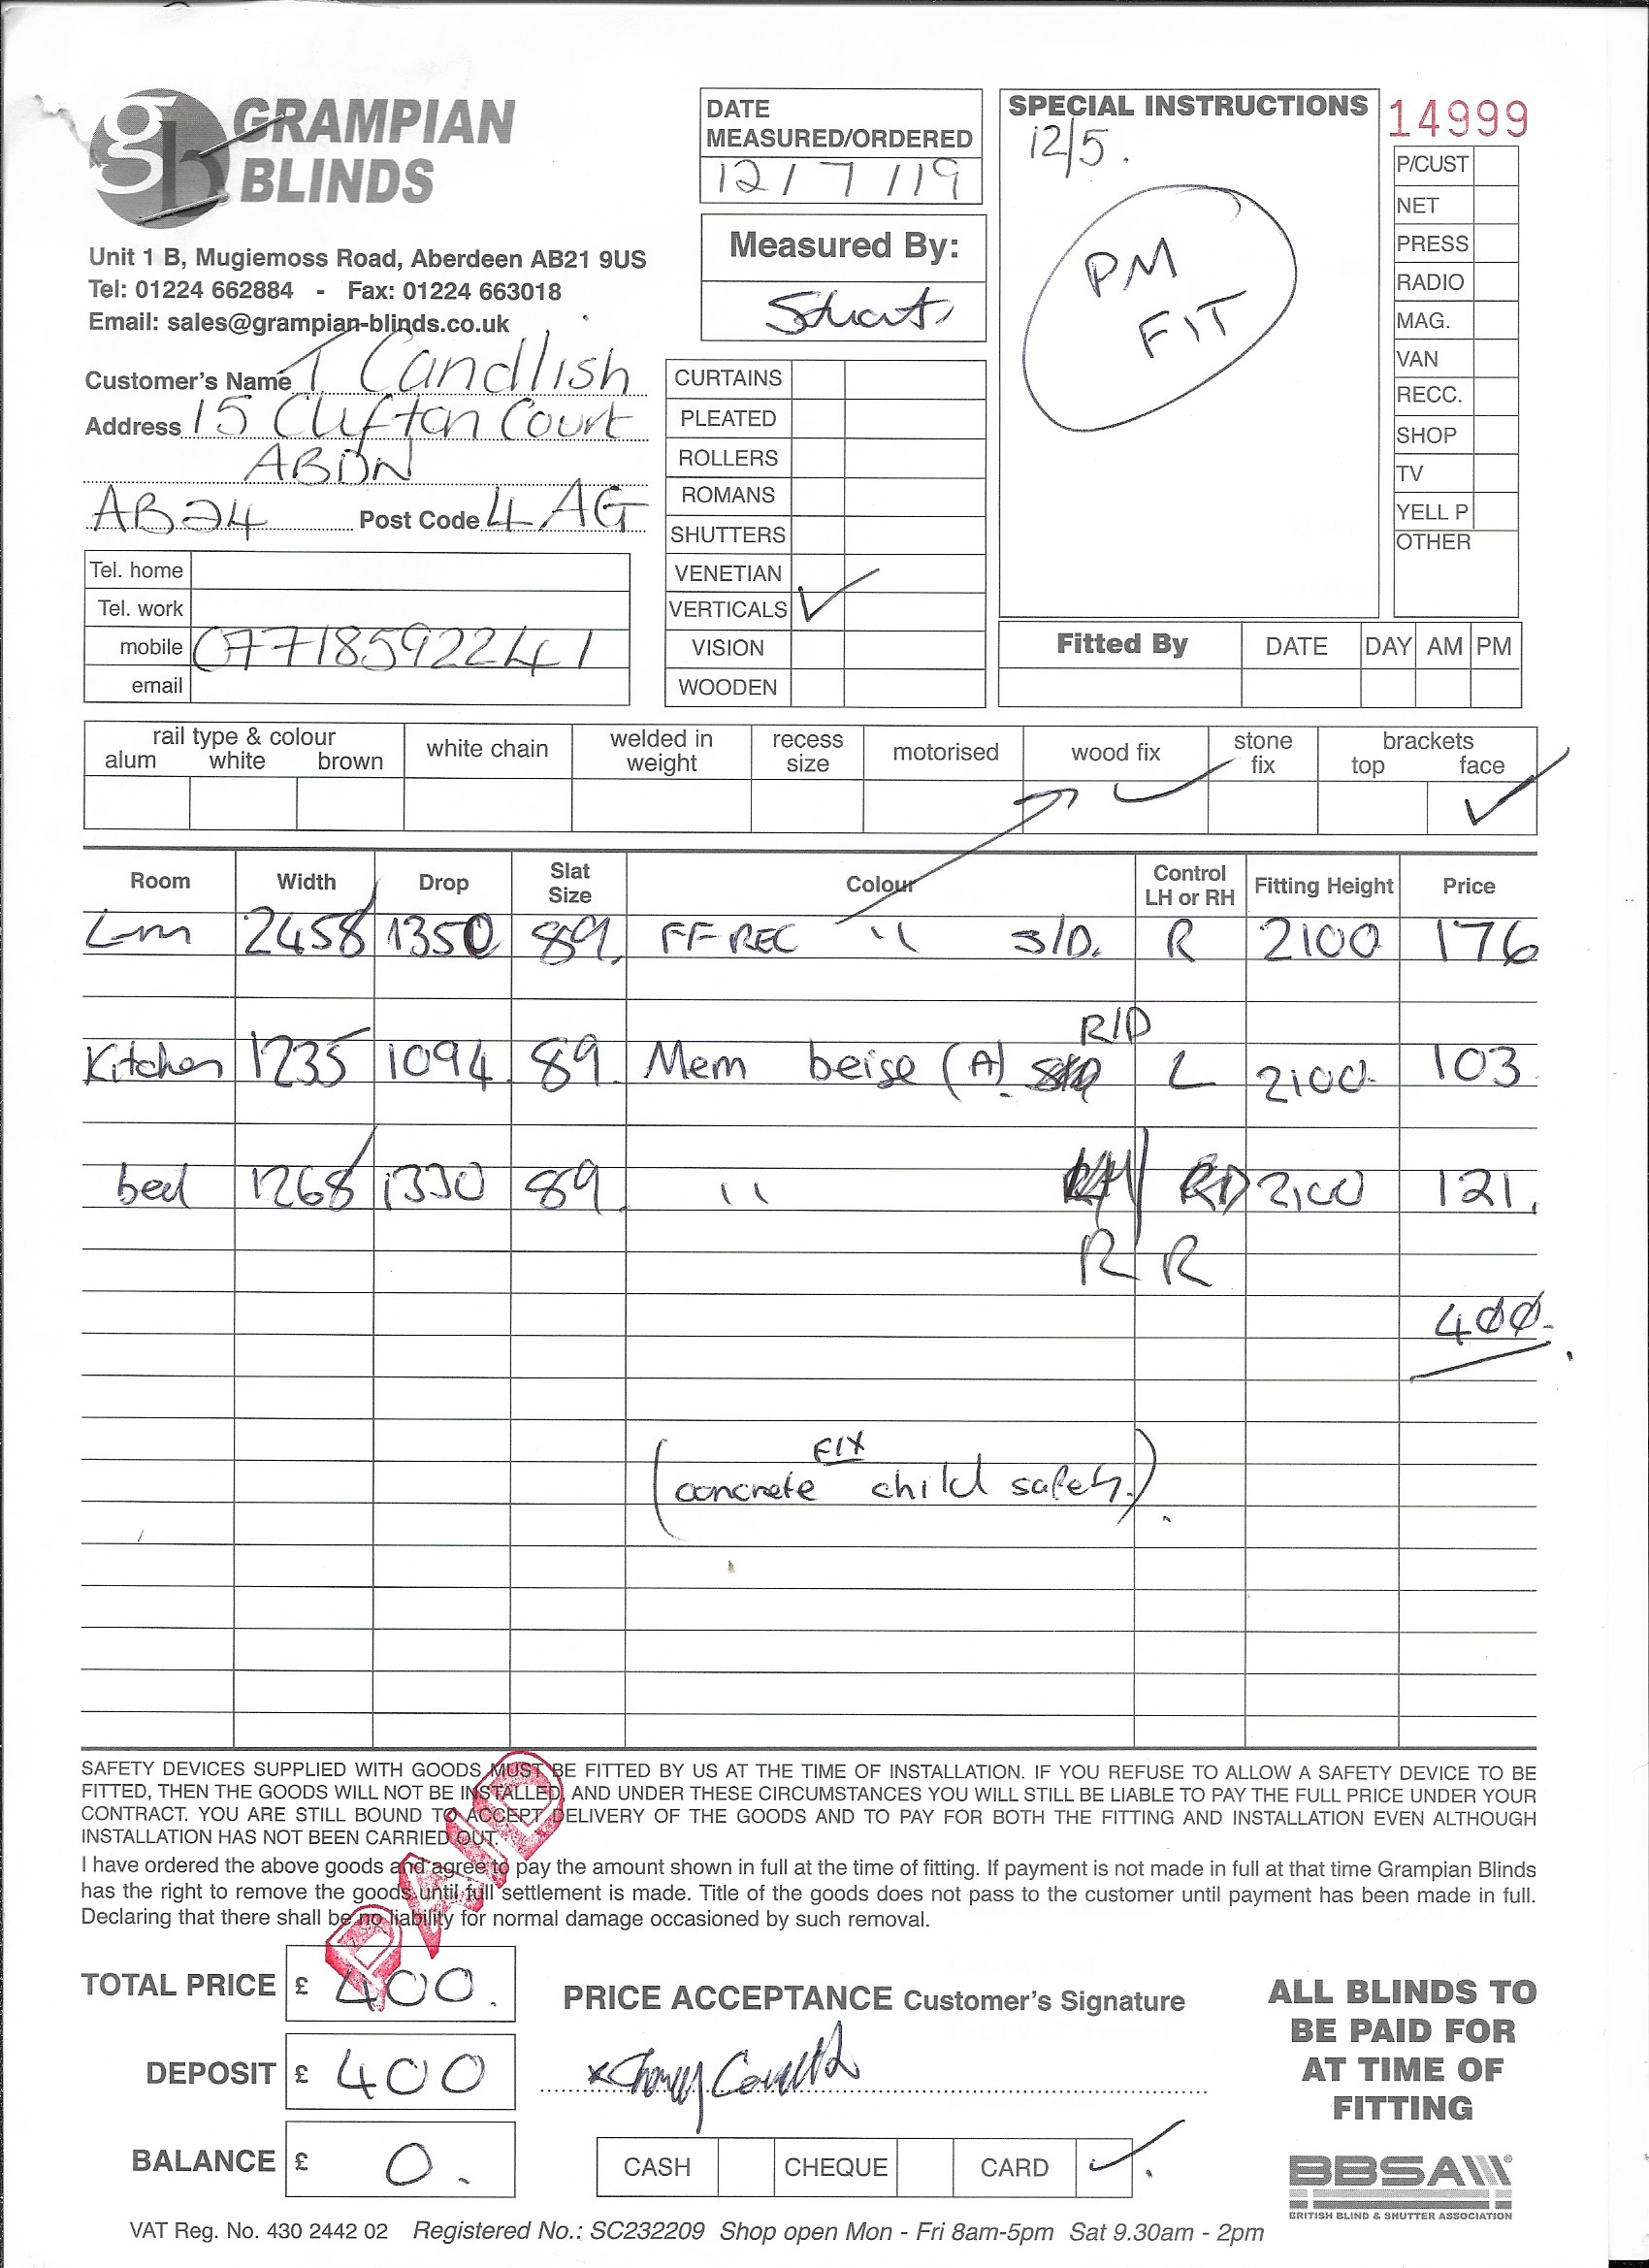 GRAMPIAN
BLINDS
gb
Unit 1 B, Mugiemoss Road, Aberdeen AB21 9US
Tel: 01224 662884 - Fax: 01224 663018
Email: sales@grampian-blinds.co.uk
Customer's Name T Candlish
Address 15 Clifton Court
ABDN
AB24 Post Code 4AG
Tel. home
Tel. work
mobile 07718592241
email
DATE
MEASURED/ORDERED
12/7/19
Measured By:
Stuart
CURTAINS
PLEATED
ROLLERS
ROMANS
SHUTTERS
VENETIAN
VERTICALS ✓
VISION
WOODEN
SPECIAL INSTRUCTIONS
12/5.
PM
FIT
14999
P/CUST
NET
PRESS
RADIO
MAG.
VAN
RECC.
SHOP
TV
YELL P
OTHER
Fitted By DATE DAY AM PM
rail type & colour white chain welded in weight recess size motorised wood fix stone fix brackets
alum white brown top face
✓ ✓
Room Width Drop Slat Size Colour Control LH or RH Fitting Height Price
L-m 2458 1350 89. FF REC " S/D. R 2100 176
R/D
Kitchen 1235 1094 89. Mem beise (A) L 2100 103
bed 1268 1330 89 " 2100 121.
R R
400.
FIX
(concrete child safety.)
SAFETY DEVICES SUPPLIED WITH GOODS MUST BE FITTED BY US AT THE TIME OF INSTALLATION. IF YOU REFUSE TO ALLOW A SAFETY DEVICE TO BE
FITTED, THEN THE GOODS WILL NOT BE INSTALLED AND UNDER THESE CIRCUMSTANCES YOU WILL STILL BE LIABLE TO PAY THE FULL PRICE UNDER YOUR
CONTRACT. YOU ARE STILL BOUND TO ACCEPT DELIVERY OF THE GOODS AND TO PAY FOR BOTH THE FITTING AND INSTALLATION EVEN ALTHOUGH
INSTALLATION HAS NOT BEEN CARRIED OUT.
I have ordered the above goods and agree to pay the amount shown in full at the time of fitting. If payment is not made in full at that time Grampian Blinds
has the right to remove the goods until full settlement is made. Title of the goods does not pass to the customer until payment has been made in full.
Declaring that there shall be no liability for normal damage occasioned by such removal.
PAID
TOTAL PRICE £ 400.
DEPOSIT £ 400
BALANCE £ 0.
PRICE ACCEPTANCE Customer's Signature
x
CASH CHEQUE CARD ✓
ALL BLINDS TO
BE PAID FOR
AT TIME OF
FITTING
BBSA
BRITISH BLIND & SHUTTER ASSOCIATION
VAT Reg. No. 430 2442 02 Registered No.: SC232209 Shop open Mon - Fri 8am-5pm Sat 9.30am - 2pm